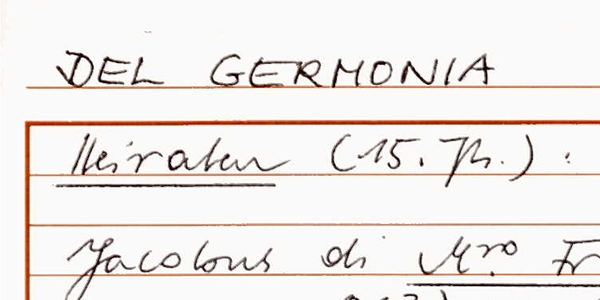 DEL GERMONIA
Heiraten (15. Jh.) :
Jacobus di Mro Fr